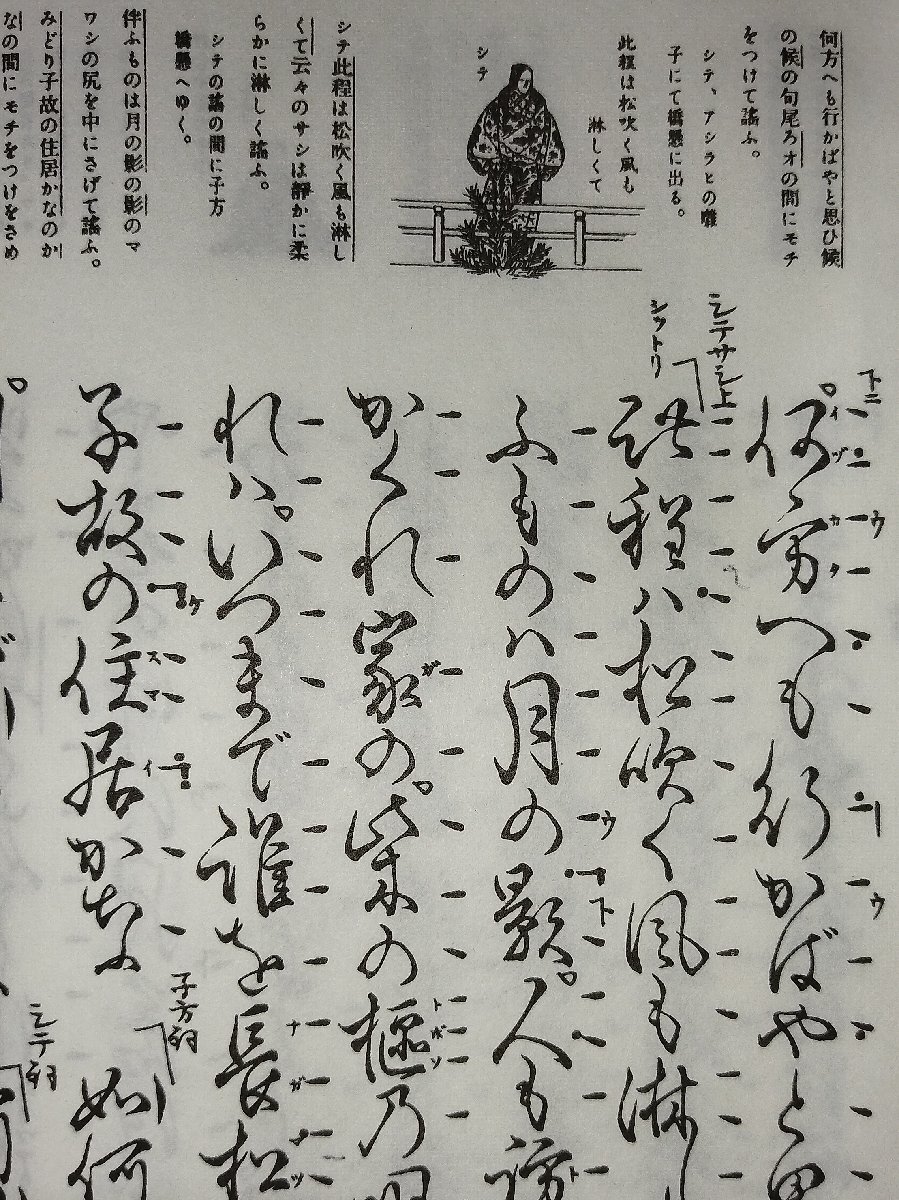 何方へも行かばやと思ひ候
の候の句尾ろオの間にモチ
をつけて謠ふ。
シテ、アシラヒの囃
子にて橋懸に出る。
此程は松吹く風も
淋しくて
シテ
シテ此程は松吹く風も淋し
くて云々のサシは靜かに柔
らかに淋しく謠ふ。
シテの謠の間に子方
橋懸へゆく。
伴ふものは月の影の影のマ
ワシの尻を中にさげて謠ふ。
みどり子故の住居かなのか
なの間にモチをつけをさめ
下ニ
何方へも行かばやと思
イヅカタ
ウ
ウ
シテサシ上
シットリ
此程ハ松吹く風も淋し
ふものハ月の影。人も訪
ウ
下
ト
かくれ家の。柴の樞乃明
ガ
トボソ
れハ。いつまで誰を長松
ナガ
ナツ
子故の住居かなふ
ケ
スマイ
子方詞
如何
シテ詞